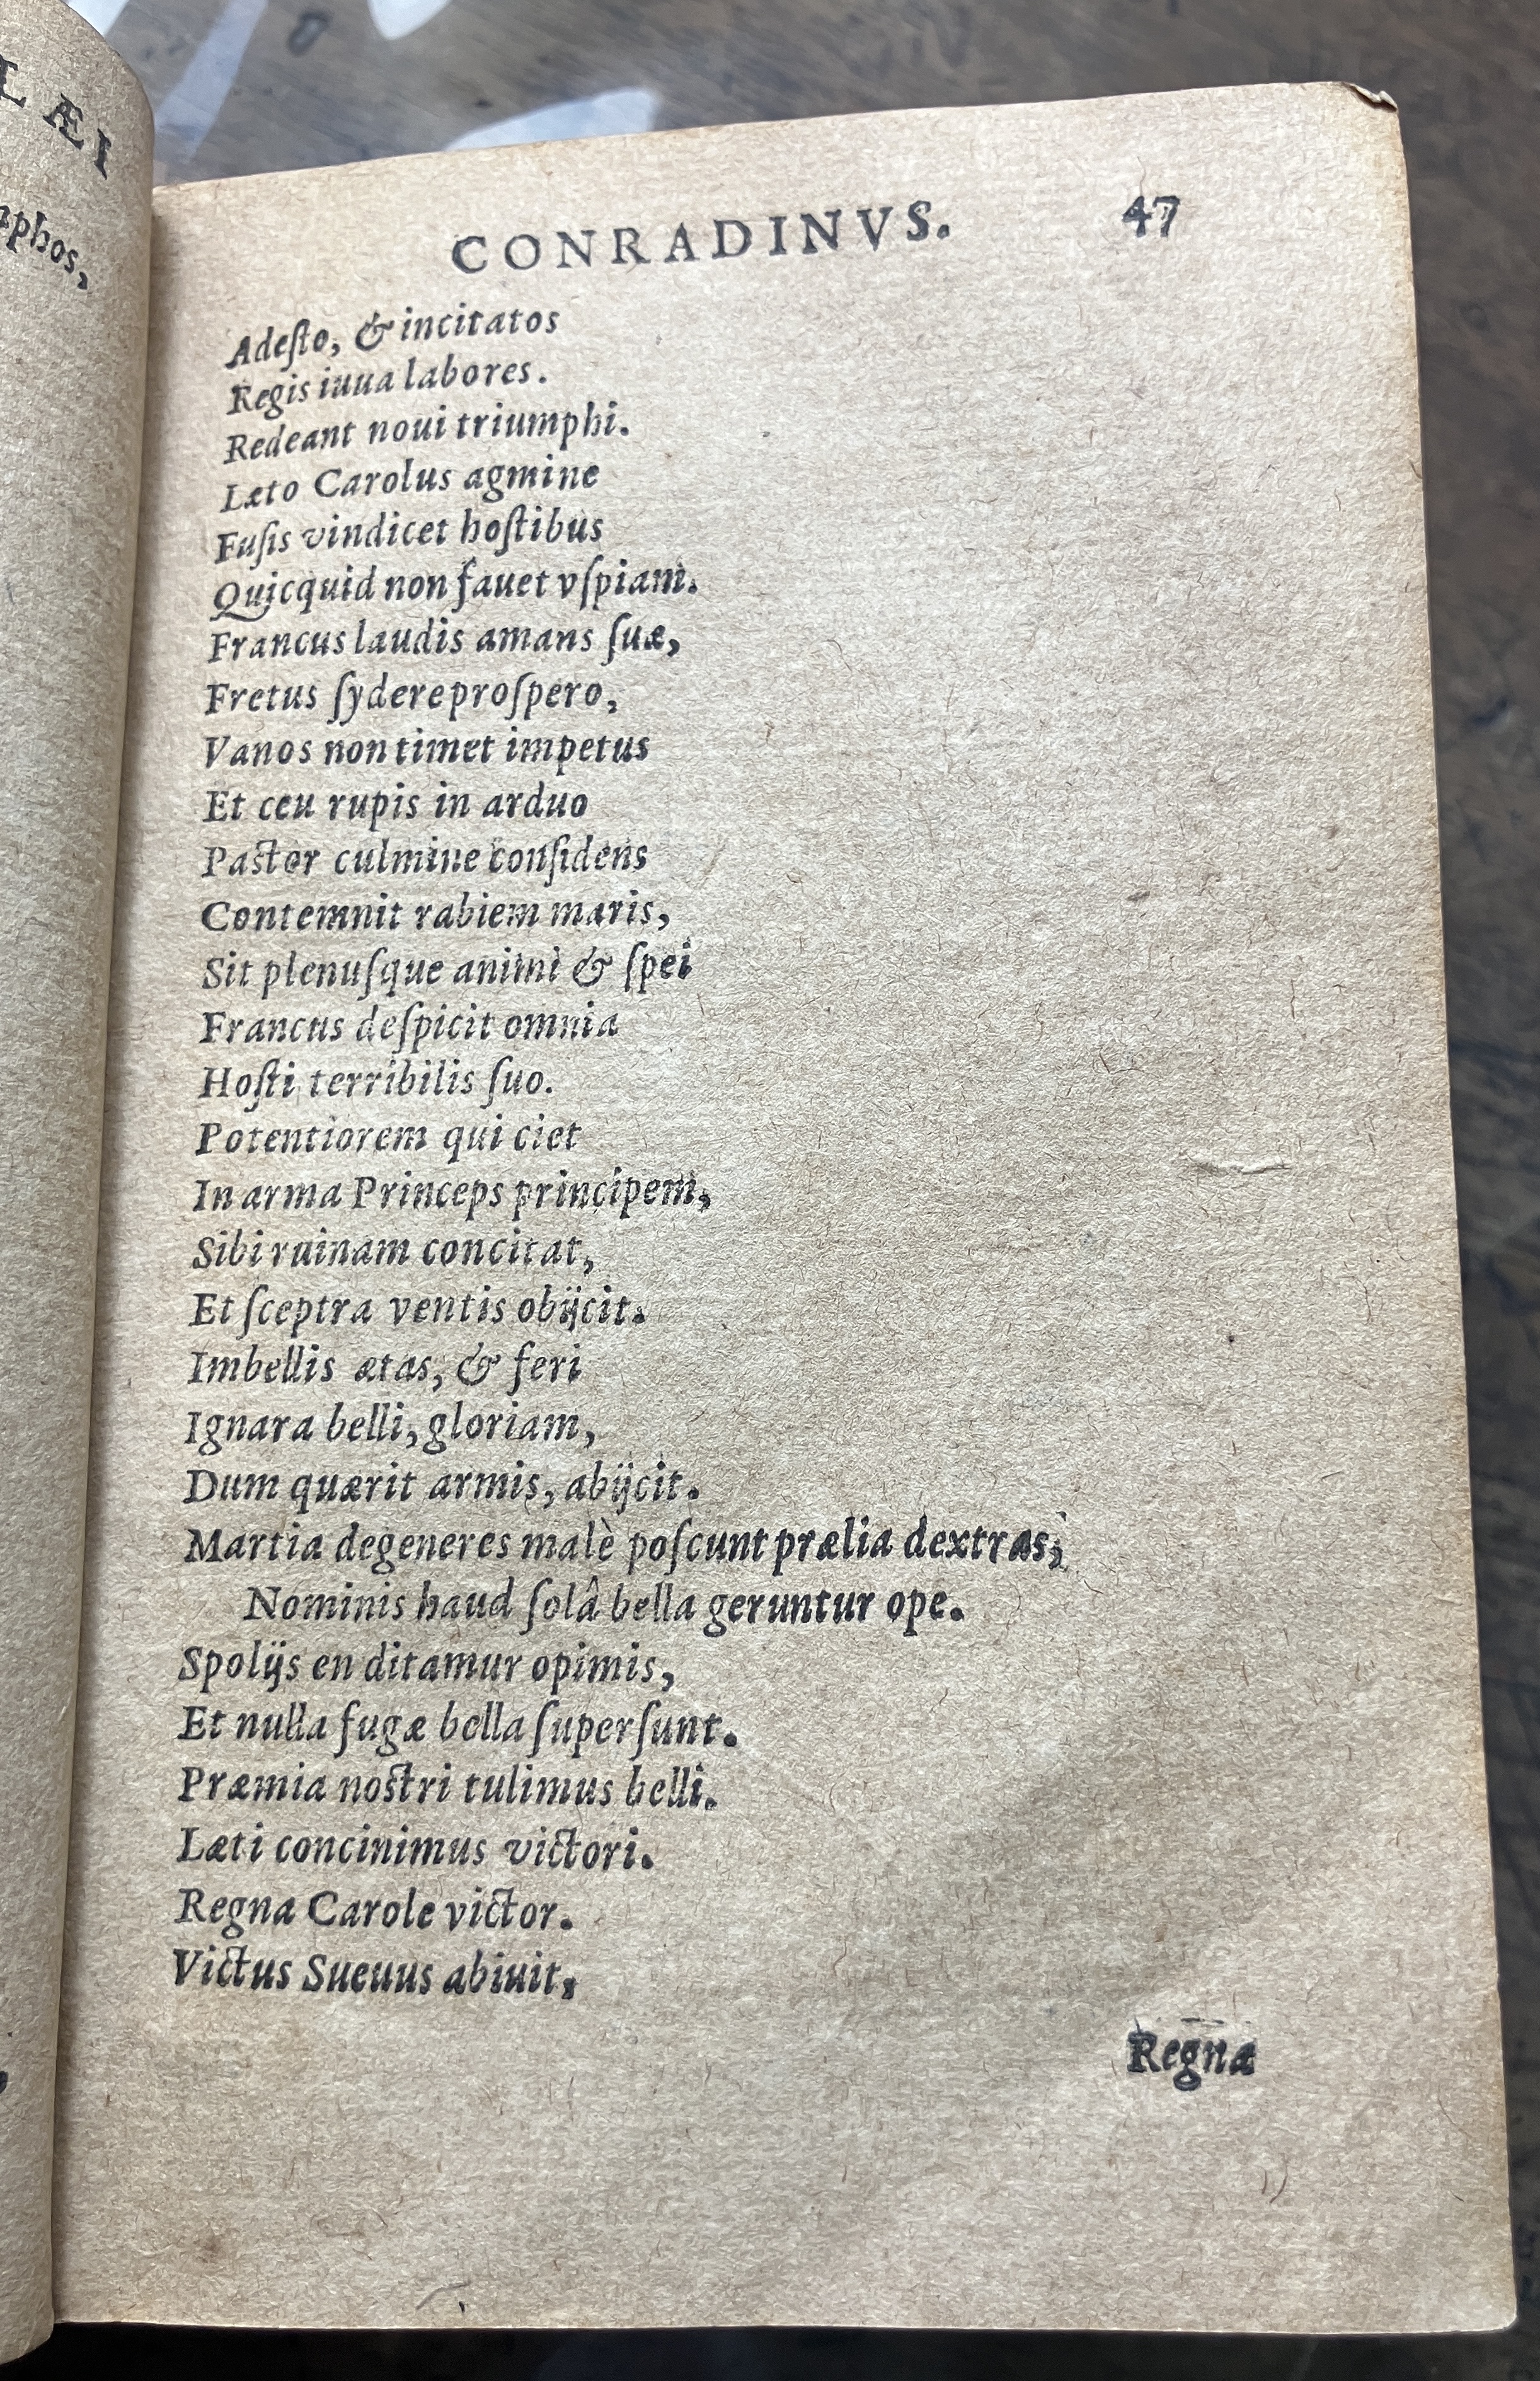 LÆI
phos,
CONRADINVS. 47
Adeſto, & incitatos
Regis iuua labores.
Redeant noui triumphi.
Læto Carolus agmine
Fuſis vindicet hoſtibus
Quicquid non fauet vſpiam.
Francus laudis amans ſuæ,
Fretus ſydere proſpero,
Vanos non timet impetus
Et ceu rupis in arduo
Paſtor culmine conſidens
Contemnit rabiem maris,
Sit plenuſque animi & ſpei
Francus deſpicit omnia
Hoſti terribilis ſuo.
Potentiorem qui ciet
In arma Princeps principem,
Sibi ruinam concitat,
Et ſceptra ventis obijcit.
Imbellis ætas, & feri
Ignara belli, gloriam,
Dum quærit armis, abijcit.
Martia degeneres malè poſcunt prælia dextras,
Nominis haud ſolâ bella geruntur ope.
Spolijs en ditamur opimis,
Et nulla fugæ bella ſuperſunt.
Præmia noſtri tulimus belli.
Læti concinimus victori.
Regna Carole victor.
Victus Sueuus abiuit,
Regna